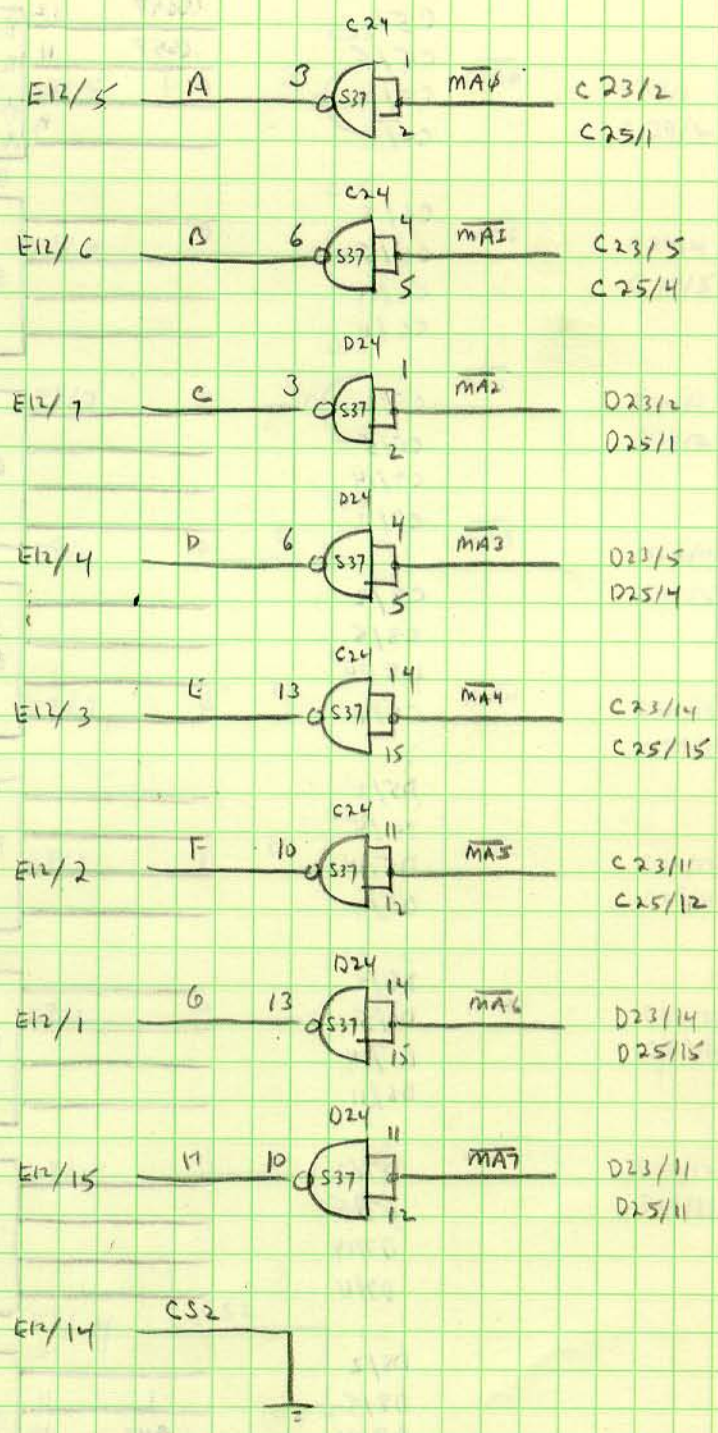 C24
E12/5 A 3 S37 1 2 M̅A̅0̅ C23/2
C25/1
C24
E12/6 B 6 S37 4 5 M̅A̅1̅ C23/5
C25/4
D24
E12/7 C 3 S37 1 2 M̅A̅2̅ D23/2
D25/1
D24
E12/4 D 6 S37 4 5 M̅A̅3̅ D23/5
D25/4
C24
E12/3 E 13 S37 14 15 M̅A̅4̅ C23/14
C25/15
C24
E12/2 F 10 S37 11 12 M̅A̅5̅ C23/11
C25/12
D24
E12/1 G 13 S37 14 15 M̅A̅6̅ D23/14
D25/15
D24
E12/15 H 10 S37 11 12 M̅A̅7̅ D23/11
D25/11
E12/14 CS2